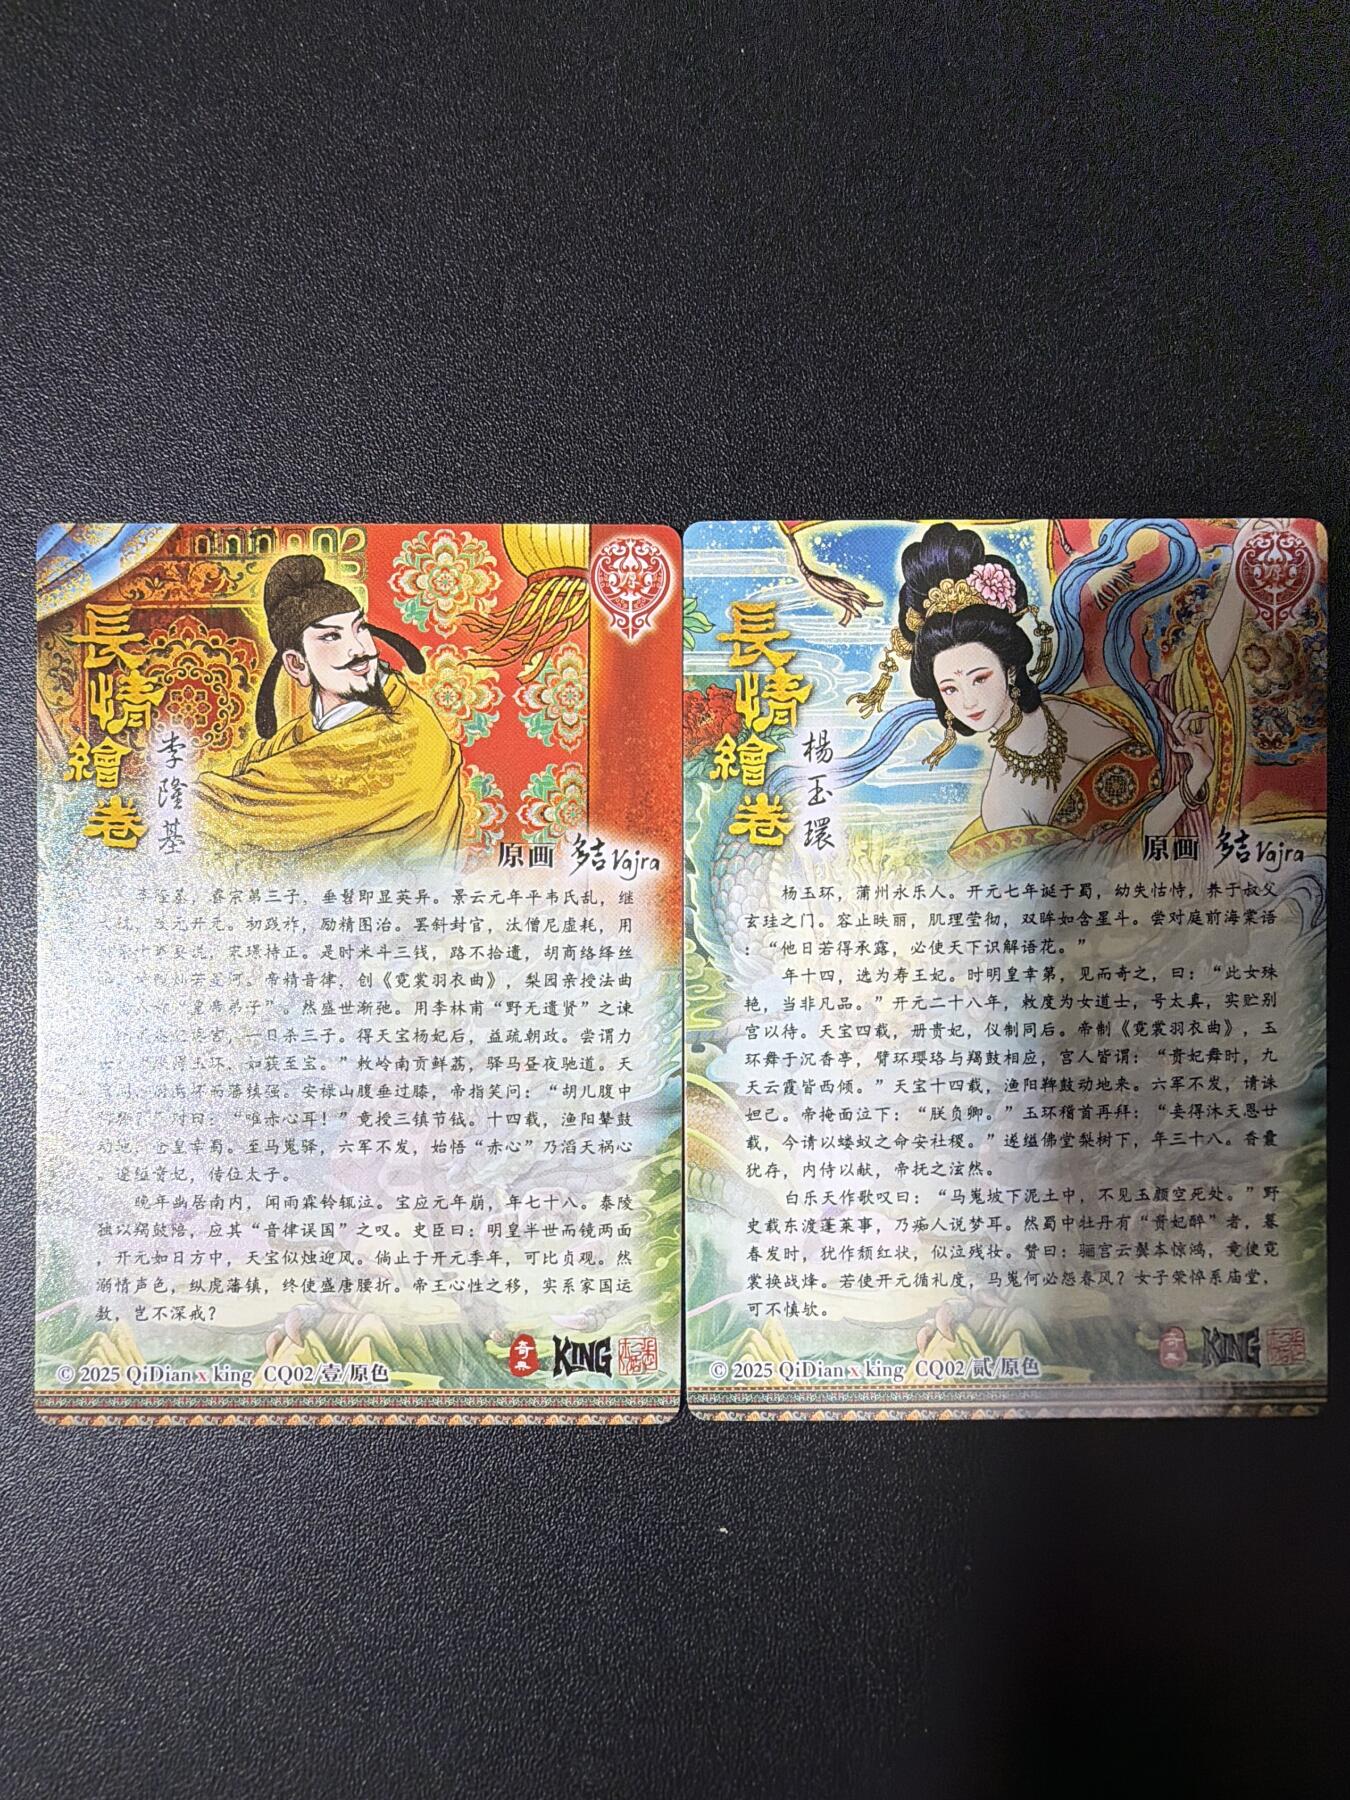 長情繪卷
李隆基
原画 多吉Vajra
李隆基，睿宗第三子，垂髫即显英异。景云元年平韦氏乱，继
改元开元。初践祚，励精图治。罢斜封官，汰僧尼虚耗，用
宋璟持正。是时米斗三钱，路不拾遗，胡商络绎丝
帝精音律，创《霓裳羽衣曲》，梨园亲授法曲
“皇帝弟子”。然盛世渐弛。用李林甫“野无遗贤”之谏
一日杀三子。得天宝杨妃后，益疏朝政。尝谓力
得玉环，如获至宝。”敕岭南贡鲜荔，驿马昼夜驰道。天
而藩镇强。安禄山腹垂过膝，帝指笑问：“胡儿腹中
对曰：“唯赤心耳！”竟授三镇节钺。十四载，渔阳鼙鼓
动地，仓皇幸蜀。至马嵬驿，六军不发，始悟“赤心”乃滔天祸心
。遂缢贵妃，传位太子。
晚年幽居南内，闻雨霖铃辄泣。宝应元年崩，年七十八。泰陵
独以羯鼓陪，应其“音律误国”之叹。史臣曰：明皇半世而镜两面
，开元如日方中，天宝似烛迎风。倘止于开元季年，可比贞观。然
溺情声色，纵虎藩镇，终使盛唐腰折。帝王心性之移，实系家国运
数，岂不深戒？
奇典 KING
© 2025 QiDian x king CQ02/壹/原色
長情繪卷
楊玉環
原画 多吉Vajra
杨玉环，蒲州永乐人。开元七年诞于蜀，幼失怙恃，养于叔父
玄珪之门。容止昳丽，肌理莹彻，双眸如含星斗。尝对庭前海棠语
：“他日若得承露，必使天下识解语花。”
年十四，选为寿王妃。时明皇幸第，见而奇之，曰：“此女殊
艳，当非凡品。”开元二十八年，敕度为女道士，号太真，实贮别
宫以待。天宝四载，册贵妃，仪制同后。帝制《霓裳羽衣曲》，玉
环舞于沉香亭，臂环璎珞与羯鼓相应，宫人皆谓：“贵妃舞时，九
天云霞皆西倾。”天宝十四载，渔阳鞞鼓动地来。六军不发，请诛
妲己。帝掩面泣下：“朕负卿。”玉环稽首再拜：“妾得沐天恩廿
载，今请以蝼蚁之命安社稷。”遂缢佛堂梨树下，年三十八。香囊
犹存，内侍以献，帝抚之泫然。
白乐天作歌叹曰：“马嵬坡下泥土中，不见玉颜空死处。”野
史载东渡蓬莱事，乃痴人说梦耳。然蜀中牡丹有“贵妃醉”者，暮
春发时，犹作颓红状，似泣残妆。赞曰：骊宫云鬓本惊鸿，竟使霓
裳换战烽。若使开元循礼度，马嵬何必怨春风？女子荣悴系庙堂，
可不慎欤。
奇典 KING
© 2025 QiDian x king CQ02/贰/原色